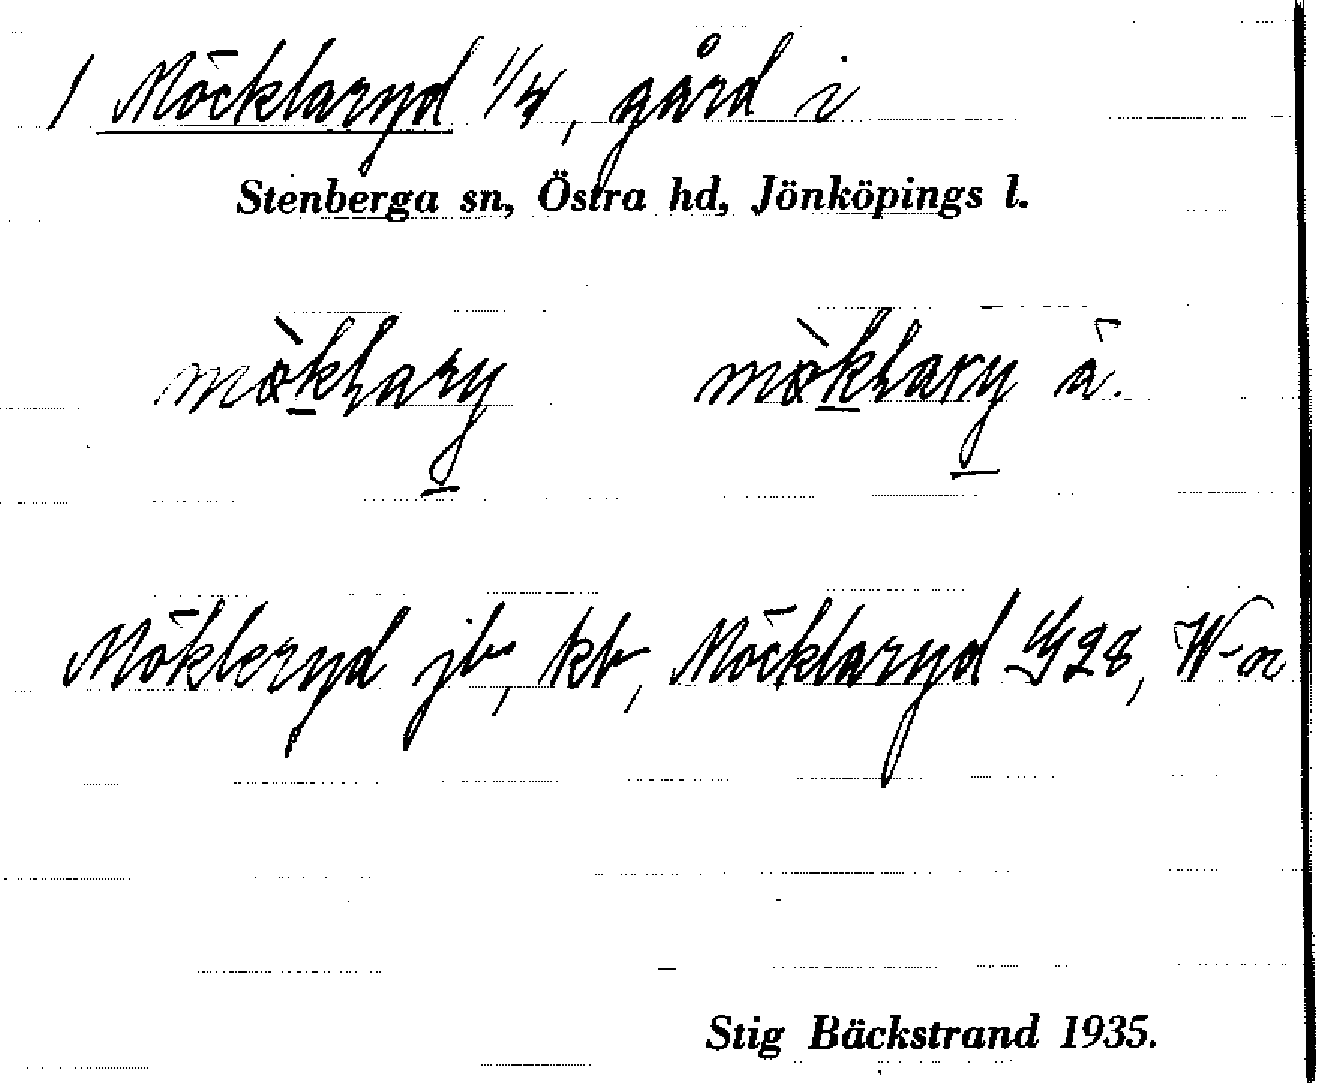 1 Möcklaryd 1/4, gård i
Stenberga sn, Östra hd, Jönköpings l.
mökḷary mökḷary ä.
Mökleryd jb, kb, Möcklaryd Gj28, W-a
Stig Bäckstrand 1935.